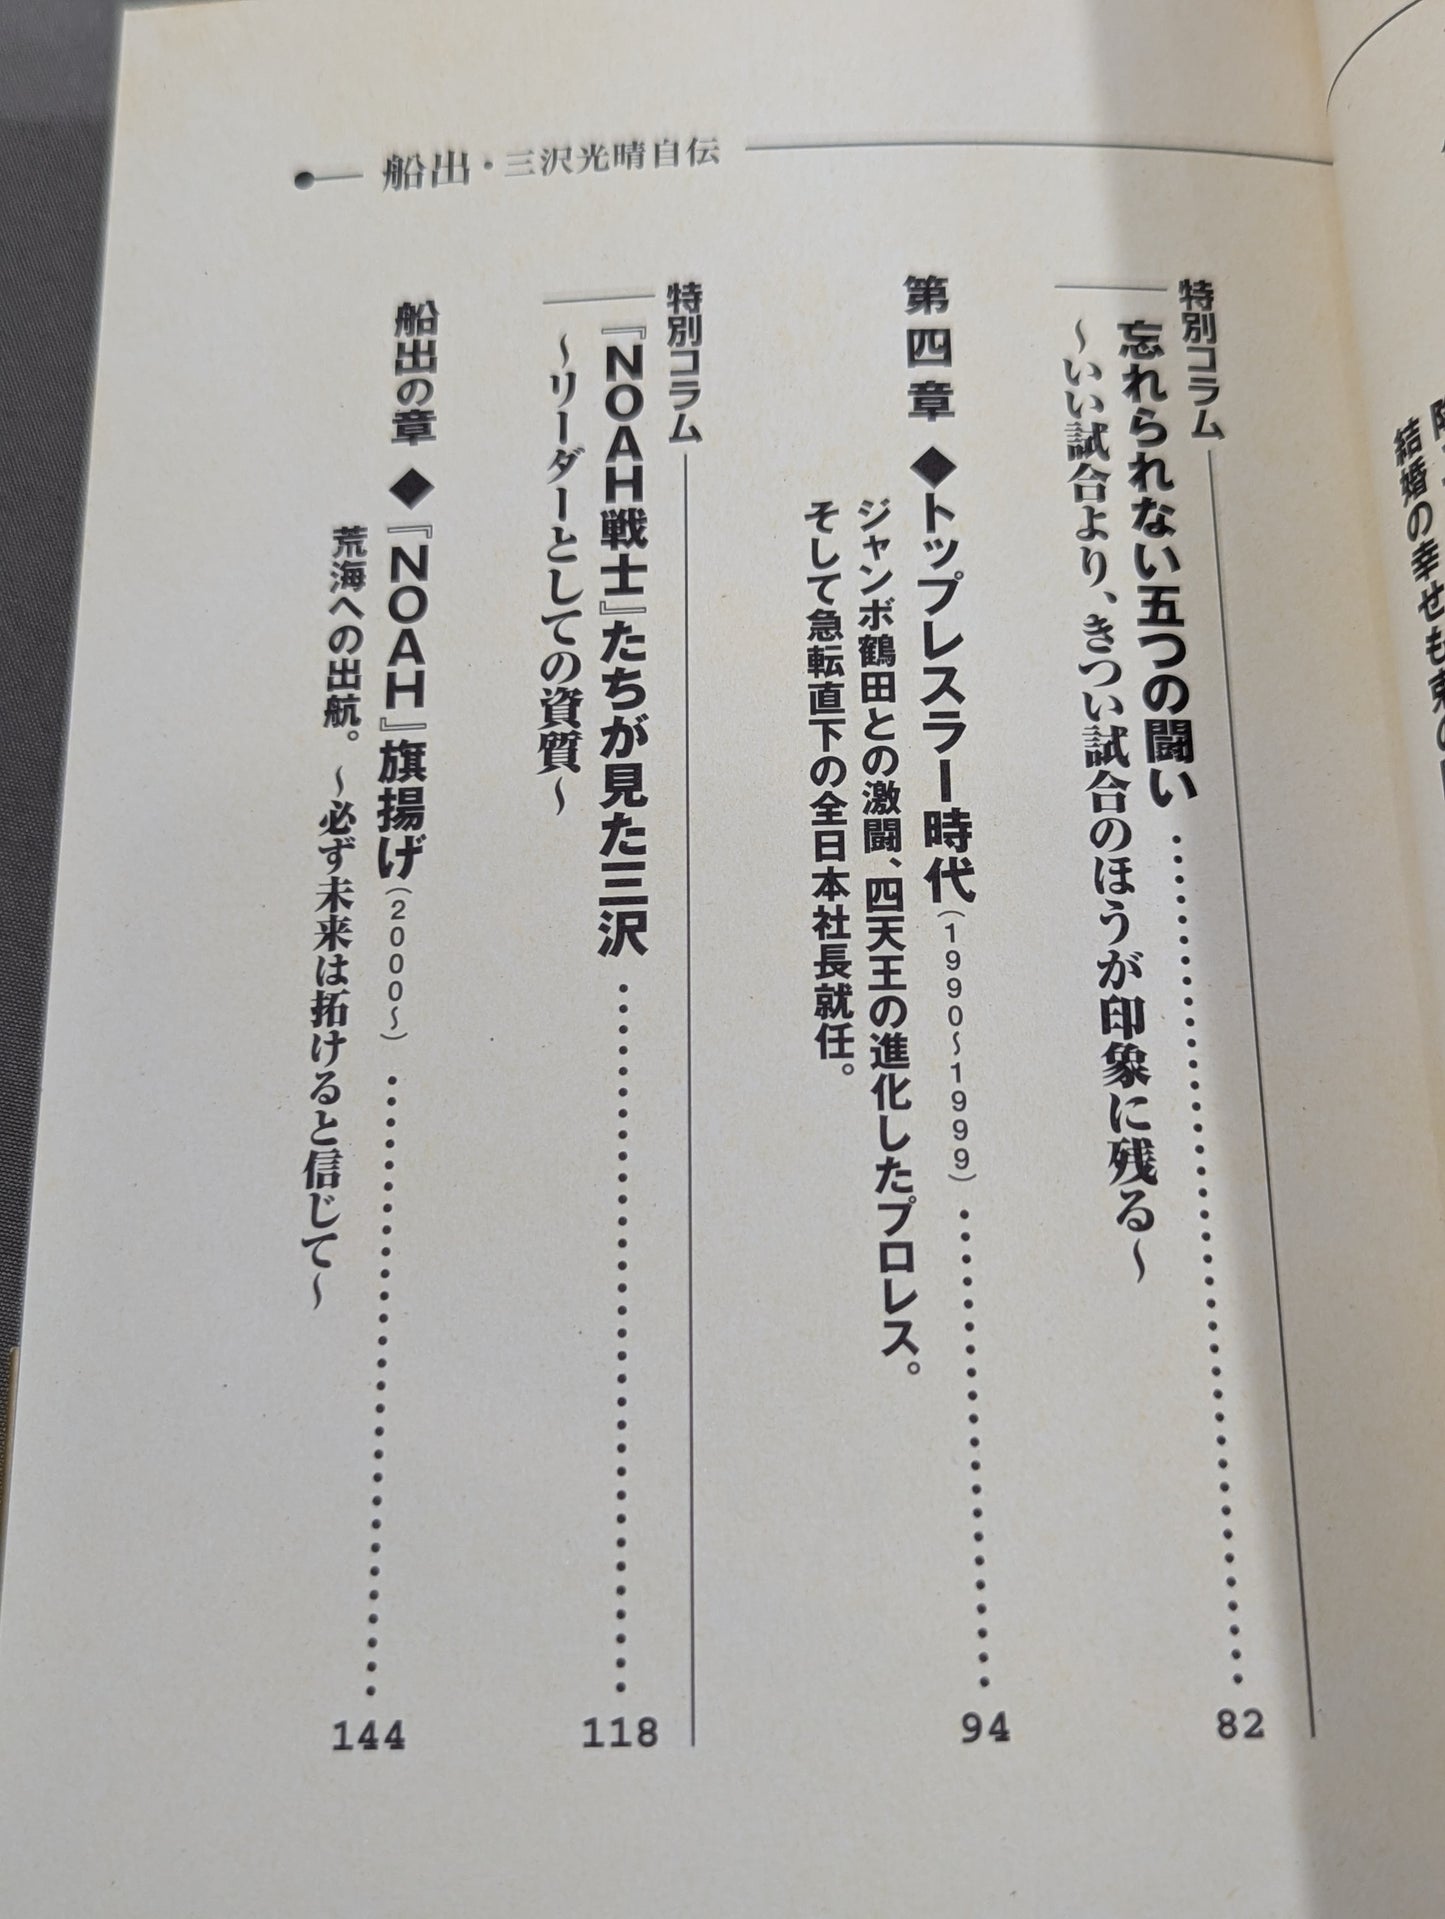 船出・三沢光晴自伝
結婚の幸せも
特別コラム
忘れられない五つの闘い……82
〜いい試合より、きつい試合のほうが印象に残る〜
第四章 ◆トップレスラー時代(1990〜1999)……94
ジャンボ鶴田との激闘、四天王の進化したプロレス。
そして急転直下の全日本社長就任。
特別コラム
『NOAH戦士』たちが見た三沢……118
〜リーダーとしての資質〜
船出の章 ◆『NOAH』旗揚げ(2000〜)……144
荒海への出航。 〜必ず未来は拓けると信じて〜